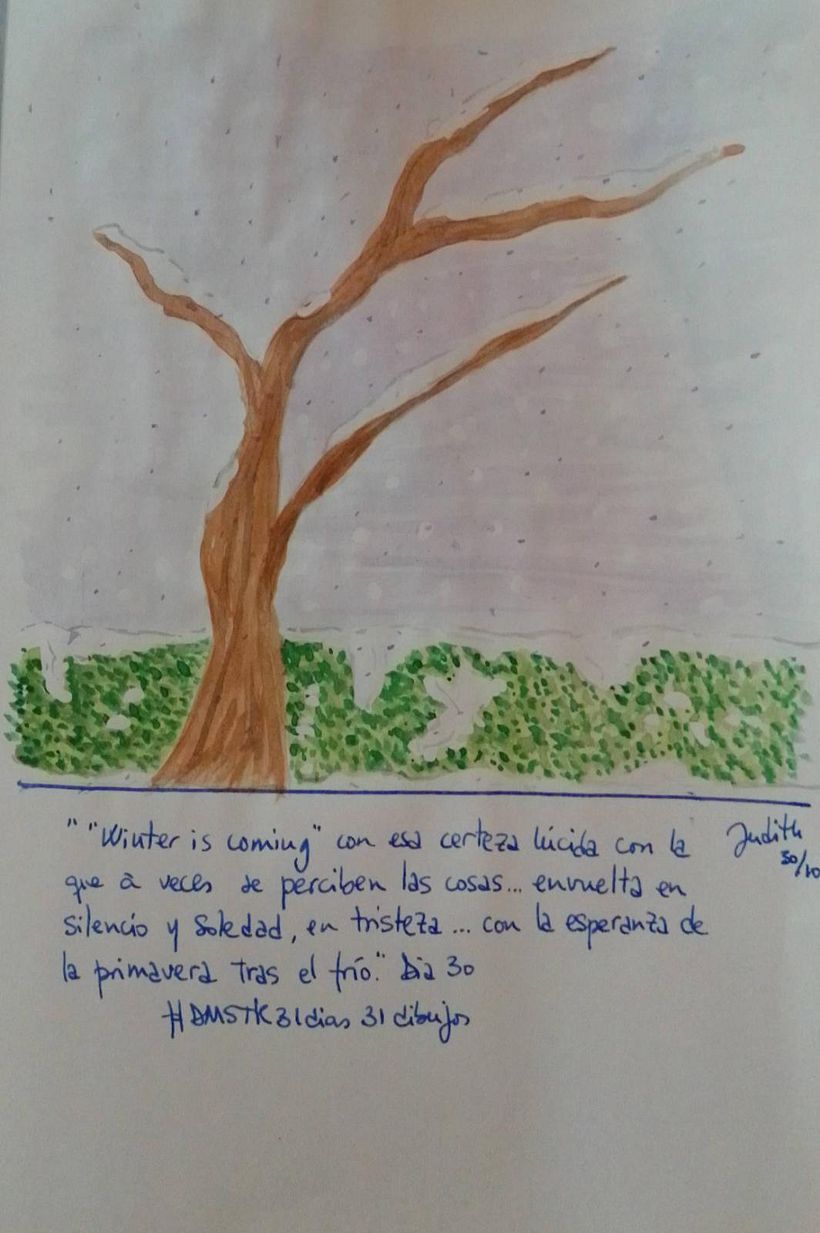 " "Winter is coming" con esa certeza lúcida con la
que a veces se perciben las cosas... envuelta en
silencio y soledad, en tristeza... con la esperanza de
la primavera tras el frío." Dia 30
#DMSTK31dias31dibujos
Judith
30/10